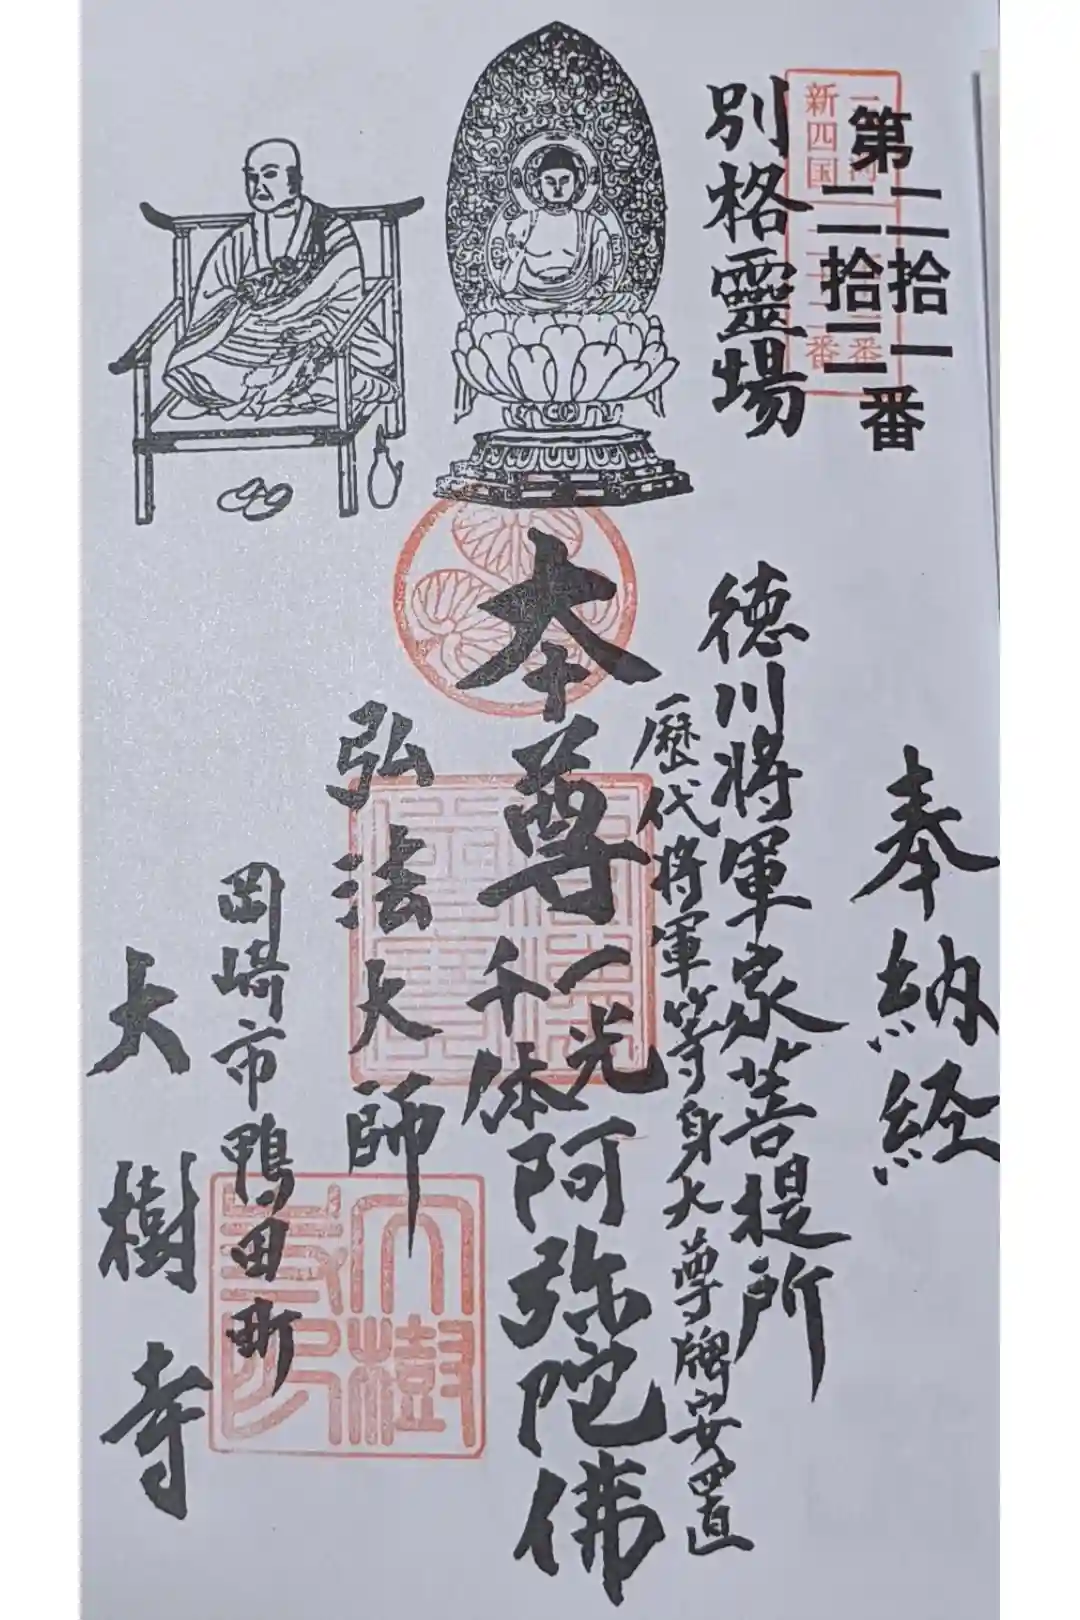 第二拾一
二拾二番
別格霊場
奉納経
徳川将軍家菩提所
歴代将軍等身大尊牌安置
本尊一光千体阿弥陀佛
弘法大師
岡崎市鴨田町
大樹寺
新四国
大樹寺印